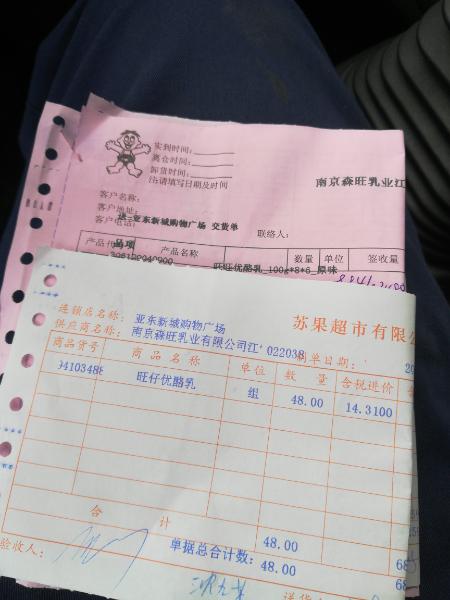 实到时间：
离仓时间：
卸货时间：
注：请填写日期及时间
南京森旺乳业江
客户名称：
客户地址：
送 亚东新城购物广场 交货单
客户电话：
联络人：
产品代 品项 产品名称 数量 单位 签收量
旺旺优酪乳_100g*8*6_原味
苏果超市有限公
连锁店名称： 亚东新城购物广场
供应商名称： 南京森旺乳业有限公司江' 022038 制单日期：
20
商品货号 商品名称 单位 数量 含税进价
旺仔优酪乳 组 48.00 14.3100
合计 48.00
单据总合计数： 48.00
68
验收人：
送货